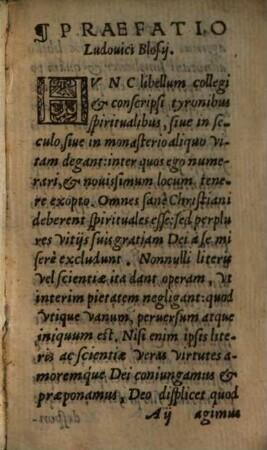 ¶ PRAEFATIO
Ludouici Blosij.
HVNC libellum collegi
& conscripsi tyronibus
spiritualibus, siue in se-
culo, siue in monasterio aliquo vi-
tam degant: inter quos ego nume-
rari, & nouissimum locum tene-
re exopto. Omnes sanè Christiani
deberent spirituales esse: sed perplu
res vitijs suis gratiam Dei à se mi
serè excludunt. Nonnulli literis
vel scientiæ ita dant operam, vt
interim pietatem negligant: quod
vtique vanum, peruersum atque
iniquum est. Nisi enim ipsis lite-
ris ac scientiæ veras virtutes a-
moremque Dei coniungamus &
præponamus, Deo displicet quod
A ij agimus